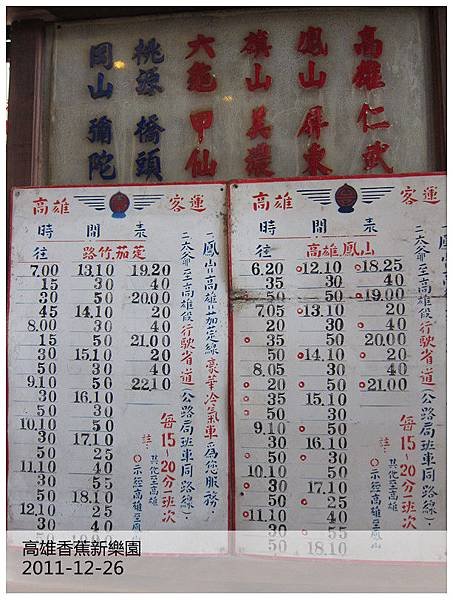 高雄 仁武
鳳山 屏東
旗山 美濃
六龜 甲仙
桃源 橋頭
岡山 彌陀
高雄 客運
時間表
往 路竹.茄萣
7.00 13.10 19.20
15 30 40
30 50 20.00
45 14.10 20
8.00 30 40
15 50 21.00
30 15.10 20
50 30 40
9.10 50 22.10
30 16.10
50 30
10.10 50
30 17.10
50 25
11.10 40
30 55
50 18.10
12.10 25
30 40
鳳山=高雄=茄萣線豪華冷氣車為您服務.
二.六爺至高雄段行駛省道(公路局班車同路線).
每15~20分一班次
註:
○示經高雄至鳳山
其他至高雄
高雄 客運
時間表
往 高雄.鳳山
6.20 ○12.10 ○18.25
35 30 40
50 50 ○19.00
7.05 ○13.10 20
20 30 40
○35 50 20.00
50 ○14.10 20
8.05 30 40
○20 50 ○21.00
○35 15.10
50 30
9.10 50
30 16.10
50 30
10.10 50
30 17.10
50 25
○11.10 40
30 55
50 18.10
二.六爺至高雄段行駛省道(公路局班車同路線).
每15~20分一班次
註:
○示經高雄至鳳山
其他至高雄
高雄香蕉新樂園
2011-12-26